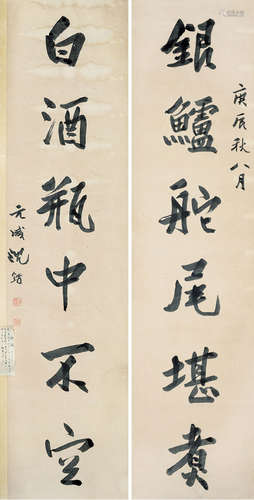 庚辰秋八月
銀鱸舵尾堪煮
白酒瓶中不空
元咸